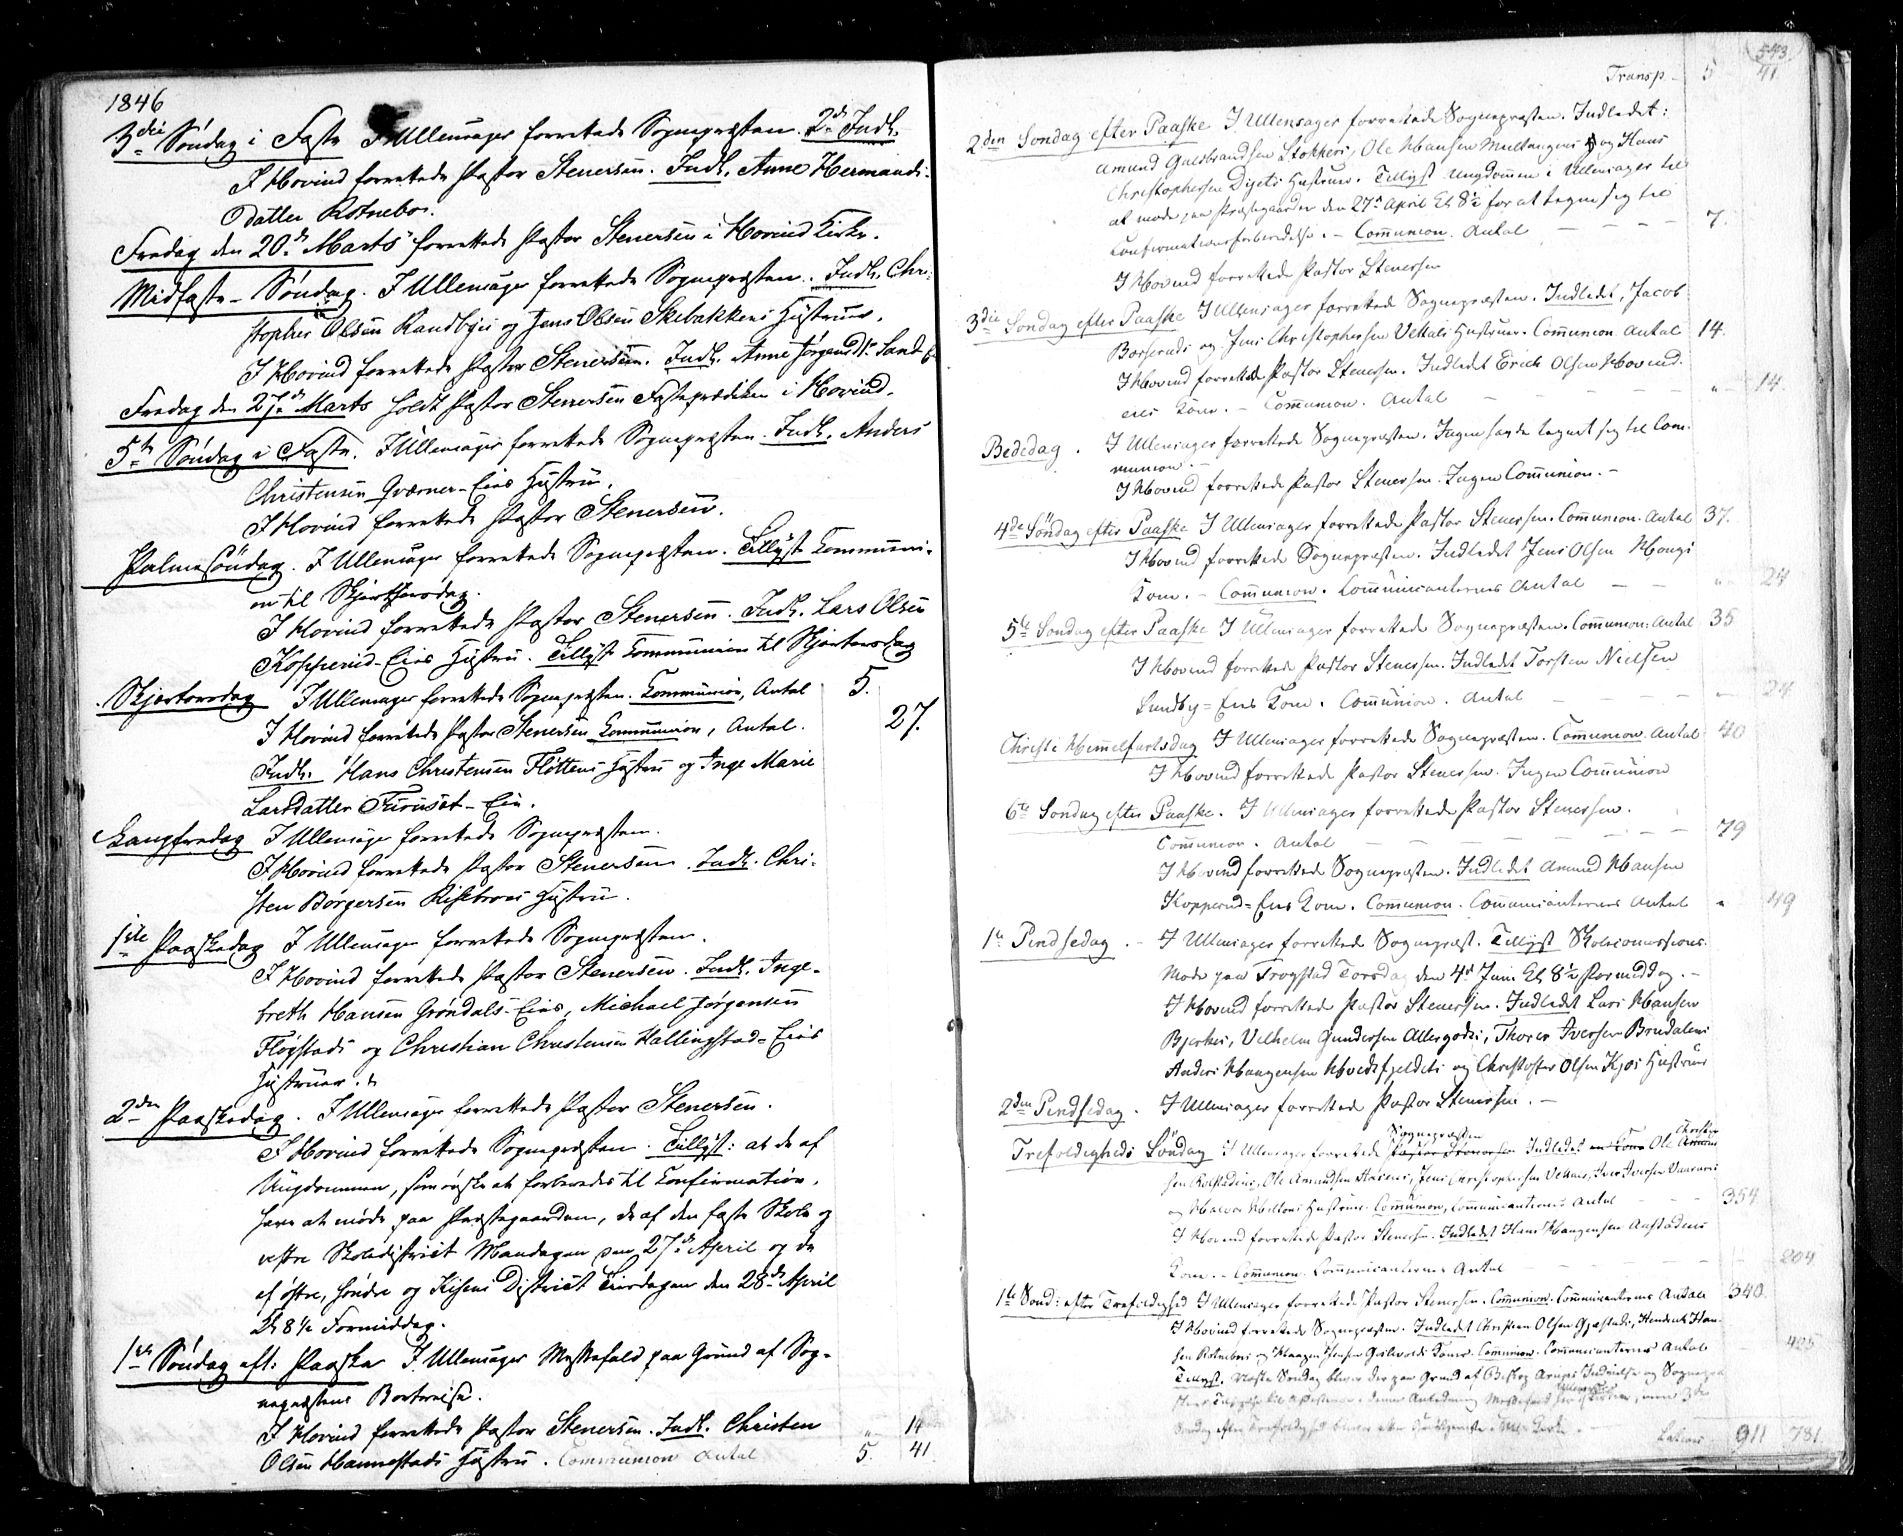 1846
3die Søndag i Faste I Ullensager forrettede Sognepræsten. 2de Indl.
I Hovind forrettede Pastor Stenersen. Indl. Anne Hermands-
datter Rotneboe.
Fredag den 20de Marts forrettede Pastor Stenersen i Hovind Kirke.
Midfaste-Søndag. I Ullensager forrettede Sognepræsten. Indl. Chri-
stopher Olsen Randbyes og Jens Olsen Skibakkens Hustruer.
I Hovind forrettede Pastor Stenersen. Indl. Anne Jørgensdtr Sand
Fredag den 27de Marts holdt Pastor Stenersen Fasteprædiken i Hovind.
5te Søndag i Faste. I Ullensager forrettede Sognepræsten. Indl. Anders
Christensen Qværner-Eies Hustru.
I Hovind forrettede Pastor Stenersen.
Palmesøndag. I Ullensager forrettede Sognepræsten. Tillyst Communi-
on til Skjærthorsdag.
I Hovind forrettede Pastor Stenersen. Indl. Lars Olsen
Kopperud-Eies Hustru. Tillyst Communion til Skjærtorsdag
Skjertorsdag I Ullensager forrettede Sognepræsten. Communion, Antal 5.
I Hovind forrettede Pastor Stenersen Communion, Antal. 27.
Indl. Hans Christensen Fløttens Hustru og Inge Marie
Larsdatter Furuset-Eie.
Langfredag I Ullensager forrettede Sognepræsten.
I Hovind forrettede Pastor Stenersen. Indl. Chri-
sten Børgersen Risebroes Hustru.
1ste Paaskedag I Ullensager forrettede Sognepræsten.
I Hovind forrettede Pastor Stenersen. Indl. Inge-
breth Hansen Grøndals-Eies, Michael Jørgensen
Fløgstads og Christian Christensen Hallingstad-Eies
Hustruer.
2den Paaskedag. I Ullensager forrettede Pastor Stenersen.
I Hovind forrettede Sognepræsten. Tillyst: at de af
Ungdommen, som ønske at forberedes til Confirmation,
have at møde paa Præstegaarden, de af den faste Skole og
vestre Skoledistrict Mandagen den 27de April og de
af østre, søndre og Kisens District Tirsdagen den 28de April
Kl 8½ Formiddag.
1ste Søndag eft: Paaske I Ullensager Messefald paa Grund af Sog-
nepræstens Bortreise.
I Hovind forrettede Pastor Stenersen. Indl. Christen „ 14
Olsen Hannestads Hustru. Communion Antal 5. 41.
543
Transp. 5 41
2den Søndag efter Paaske I Ullensager forrettede Sognepræsten. Indledet:
Amund Gulbrandsen Stokkers, Ole Hansen Multangens og Hans
Christophersen Dyets Hustruer. Tillyst Ungdommen i Ullensager til
at møde paa Præstegaarden den 27de April Kl 8½ for at tegne sig til
Confirmationsforberedelse. - Communion. Antal 7.
I Hovind forrettede Pastor Stenersen
3die Søndag efter Paaske I Ullensager forrettede Sognepræsten. Indledet, Jacob
og Jens Christophersen Vettals Hustruer. Communion Antal 14.
I Hovind forrettede Pastor Stenersen. Indledet Erich Olsen Hovind-
eies Kone. - Communion. Antal „ 14.
Bededag. I Ullensager forrettede Sognepræsten. Ingen havde tegnet sig til Com-
munion. -
I Hovind forrettede Pastor Stenersen. Ingen Communion. -
4de Søndag efter Paaske I Ullensager forrettede Pastor Stenersen. Communion. Antal 37.
I Hovind forrettede Sognepræsten. Indledet Jens Olsen Haugs
Kone. - Communion. Communicanternes Antal „ 24
5te Søndag efter Paaske I Ullensager forrettede Sognepræsten. Communion: Antal 35
I Hovind forrettede Pastor Stenersen. Indledet Torsten Nielsen
Sundby=Eies Kone. Communion. Antal „ 24
Christi Himmelfartsdag I Ullensager forrettede Sognepræsten. Communion. Antal 40
I Hovind forrettede Pastor Stenersen. Ingen Communion
6te Søndag efter Paaske. I Ullensager forrettede Pastor Stenersen.
Communion. Antal 79
I Hovind forrettede Sognepræsten. Indledet Amund Hansen
Kopperud=Eies Kone. Communion. Communicanternes Antal „ 49
1te Pindsedag. - I Ullensager forrettede Sognepræst. Tillyst Skolecommissions-
Møde paa Trogstad Torsdag den 4de Juni Kl 8½ Formiddag. -
I Hovind forrettede Pastor Stenersen. Indledet Lars Hansen
Bjerkes, Vilhelm Gundersen Allergodts, Thorer Iversen Brudalens
Anders Haagensen Hvedtfjeldets og Christoffer Olsen Kjos Hustruer
2den Pindsedag. I Ullensager forrettede Pastor Stenersen. -
Trefoldigheds Søndag I Ullensager forrettede Sognepræsten Indledet Ole Christen-
sen Rolstadens, Ole Amundsen, Jens Christophersen Vettals, Iver Iversen
og Halvor Hustruer. Communion, Communicanternes Antal 354
I Hovind forrettede Pastor Stenersen. Indledet Hans Haagensen
Kone. - Communion. Communicanternes Antal 204
1te Sønd: efter Trefoldighed I Ullensager forrettede Pastor Stenersen. Communion. Communicanternes Antal 340.
I Hovind forrettede Sognepræsten. Indledet Christian Olsen Gjestads, Hendrik Han-
sen Rotnebos og Haagen Koner. Communion. Communicanternes Antal 425
Tillyst. Næste Søndag bliver der paa Grund af Biskop Arups og Sognepræ-
Søndag efter Trefoldighed
Lateris 911 781.